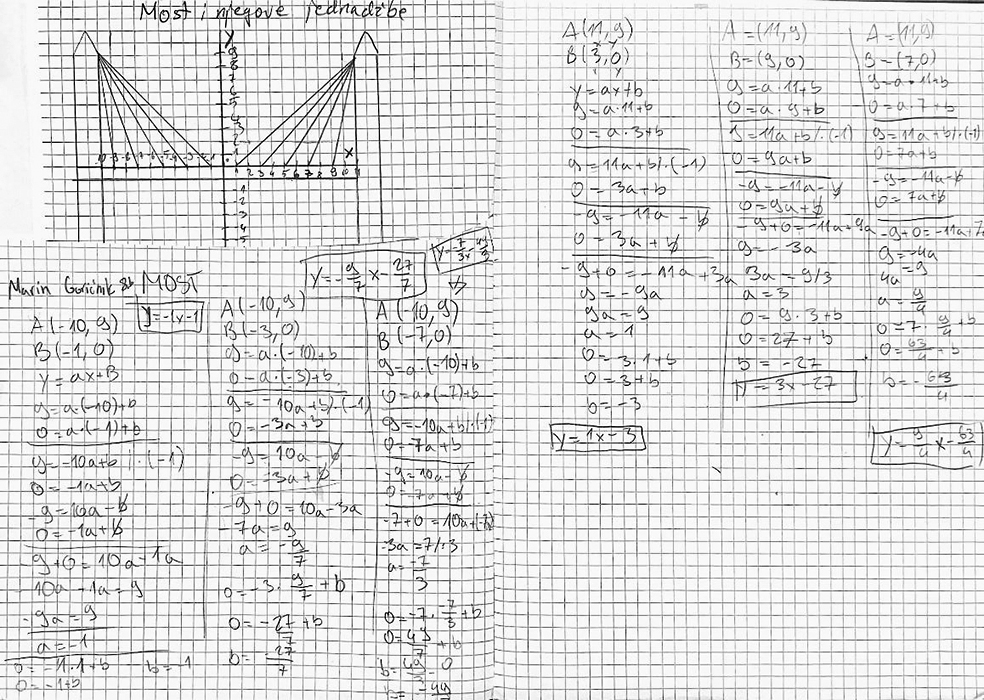 Most i njegove jednadžbe
Y
9
8
7
6
5
3
2
1
X
1 2 3 4 5 6 7 8 9 10 11
-1
-2
-3
-4
-5
MOST
Marin
y=-1x-1
A(-10,9)
B(-1,0)
y=ax+B
9=a·(-10)+b
0=a·(-1)+b
9=-10a+b /·(-1)
0=-1a+b
-9=10a-b
0=-1a+b
-9+0=10a-1a
10a-1a=9
-9a=9
a=-1
0=-1·1+b b=-1
0=-1+b
y=-9/7x-27/7
A(-10,9)
B(-3,0)
9=a·(-10)+b
0=a·(-3)+b
9=-10a+b/·(-1)
0=-3a+b
-9=10a-b
0=-3a+b
-9+0=10a-3a
-7a=9
a=-9/7
0=-3·9/7+b
0=-27/7+b
b=-27/7
A(-10,9)
B(-7,0)
9=a·(-10)+b
0=a·(-7)+b
9=-10a+b/·(-1)
0=-7a+b
-9=10a-b
0=-7a+b
-7+0=10a+(-7a)
-3a=7/:3
a=-7/3
0=-7·-7/3+b
A(11,9)
B(3,0)
y=ax+b
9=a·11+b
0=a·3+b
9=11a+b/·(-1)
0=3a+b
-9=-11a-b
0=3a+b
-9+0=-11a+3a
9=-9a
9a=9
a=1
0=3·1+b
0=3+b
b=-3
y=1x-3
A=(11,9)
B=(9,0)
9=a·11+b
0=a·9+b
9=11a+b/·(-1)
0=9a+b
-9=-11a-b
0=9a+b
-9+0=-11a+9a
9=-3a
3a=9/3
a=3
0=9·3+b
0=27+b
b=-27
y=3x-27
A=(11,9)
B=(7,0)
9=a·11+b
0=a·7+b
9=11a+b/·(-1)
0=7a+b
-9=-11a-b
0=7a+b
-9+0=-11a+7a
9=-4a
4a=9
a=9/4
0=7·9/4+b
0=63/4+b
b=-63/4
y=9/4x-63/4